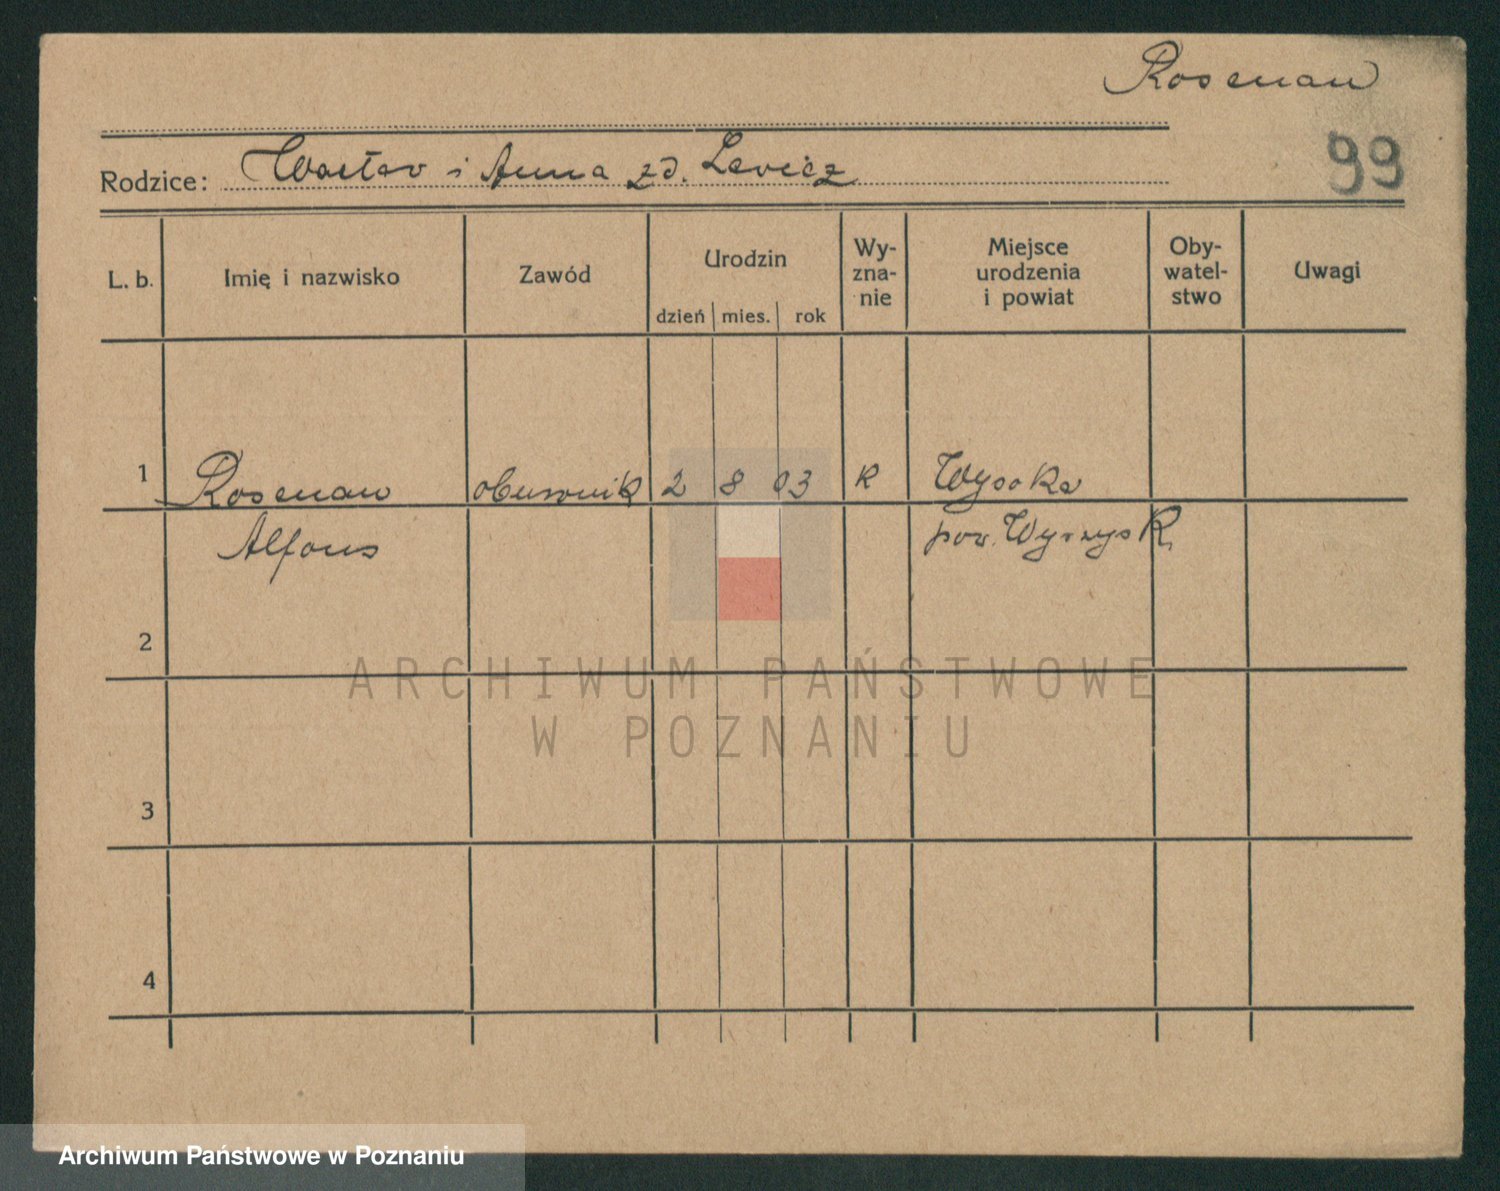 Rosenau
99
Rodzice: Wacław i Anna zd. Lewicz
L. b.
Imię i nazwisko
Zawód
Urodzin
dzień mies. rok
Wy-
zna-
nie
Miejsce
urodzenia
i powiat
Oby-
watel-
stwo
Uwagi
1 Rosenau obuwnik 2 8 03 R Wysoka
Alfons pow. Wyrzysk
2
3
4
ARCHIWUM PAŃSTWOWE
W POZNANIU
Archiwum Państwowe w Poznaniu